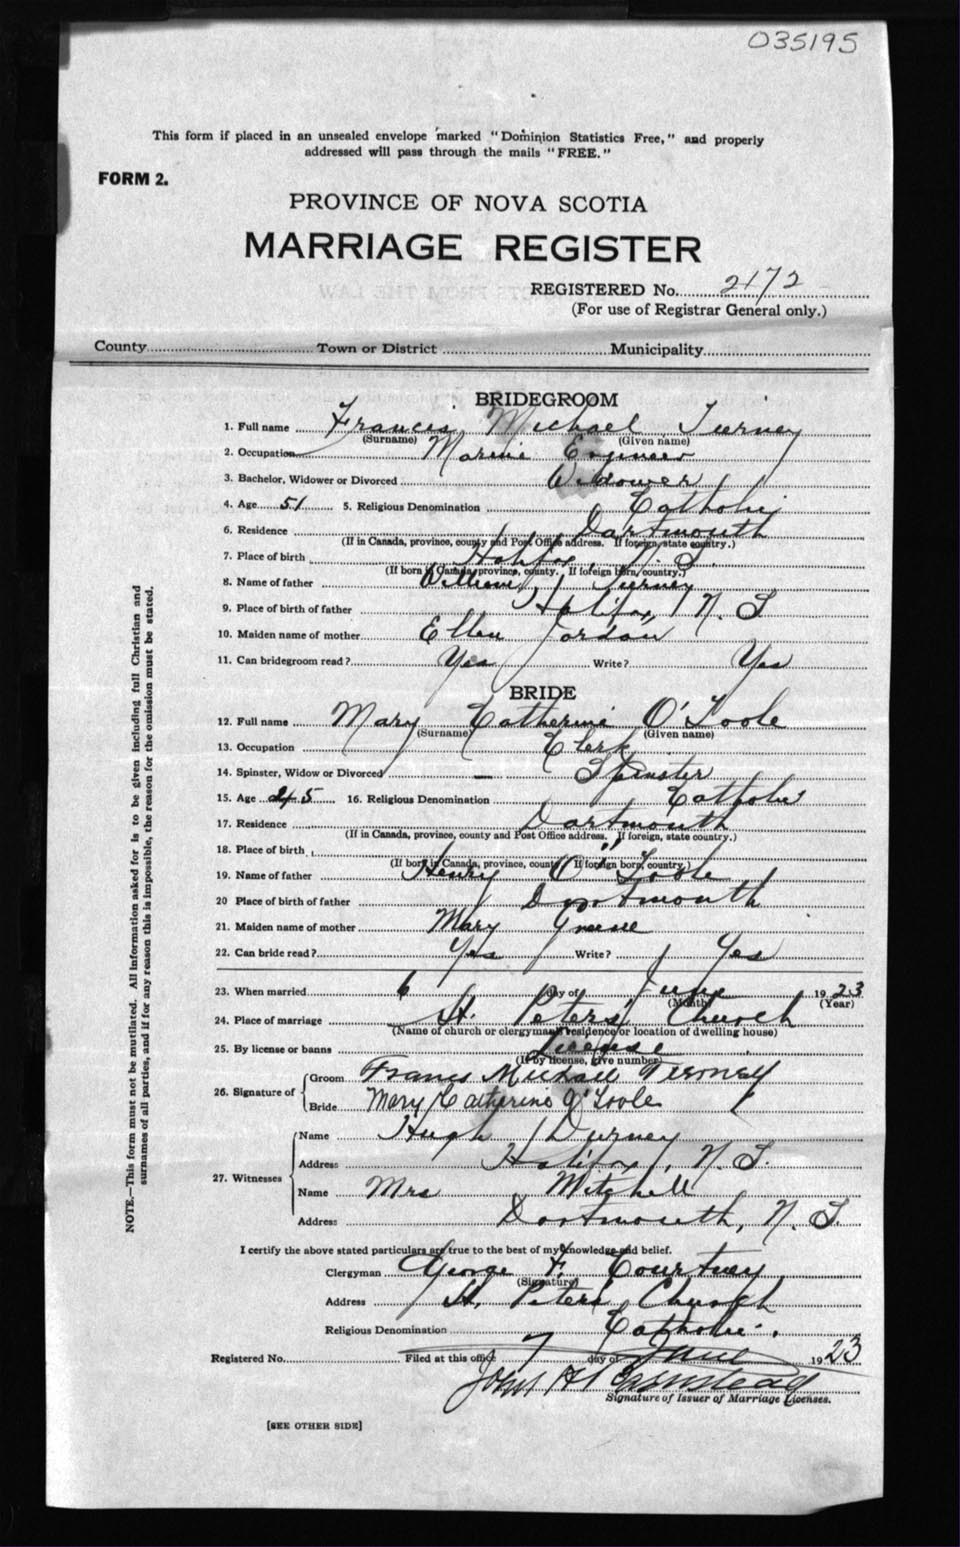 035195
This form if placed in an unsealed envelope marked "Dominion Statistics Free," and properly
addressed will pass through the mails "FREE."
FORM 2.
PROVINCE OF NOVA SCOTIA
MARRIAGE REGISTER
REGISTERED No. 2172
(For use of Registrar General only.)
County Town or District Municipality
BRIDEGROOM
1. Full name Francis Michael Tierney
(Surname) (Given name)
2. Occupation Marine Engineer
3. Bachelor, Widower or Divorced Widower
4. Age 51 5. Religious Denomination Catholic
6. Residence Dartmouth
(If in Canada, province, county and Post Office address. If foreign, state country.)
7. Place of birth Halifax N. S.
(If born in Canada, province, county. If foreign born, country.)
8. Name of father William Tierney
9. Place of birth of father Halifax, N. S
10. Maiden name of mother Ellen Jordan
11. Can bridegroom read? Yes Write? Yes
BRIDE
12. Full name Mary Catherine O'Toole
(Surname) (Given name)
13. Occupation Clerk
14. Spinster, Widow or Divorced – Spinster
15. Age 45 16. Religious Denomination Catholic
17. Residence Dartmouth
(If in Canada, province, county and Post Office address. If foreign, state country.)
18. Place of birth "
(If born in Canada, province, county. If foreign born, country.)
19. Name of father Henry O'Toole
20 Place of birth of father Dartmouth
21. Maiden name of mother Mary
22. Can bride read? Yes Write? Yes
23. When married 6 day of June 1923
(Month) (Year)
24. Place of marriage St. Peters Church
(Name of church or clergyman's residence or location of dwelling house)
25. By license or banns License
(If by license, give number)
26. Signature of
Groom Francis Michael Tierney
Bride Mary Catherine O'Toole
27. Witnesses
Name Hugh
Address Halifax, N. S.
Name Mrs Mitchell
Address Dartmouth, N. S.
I certify the above stated particulars are true to the best of my knowledge and belief.
Clergyman George F. Courtney
(Signature)
Address St. Peters Church
Religious Denomination Catholic.
Registered No. Filed at this office 7 day of June 1923
John H
Signature of Issuer of Marriage Licenses.
[SEE OTHER SIDE]
NOTE.—This form must not be mutilated. All information asked for is to be given including full Christian and
surnames of all parties, and if for any reason this is impossible, the reason for the omission must be stated.